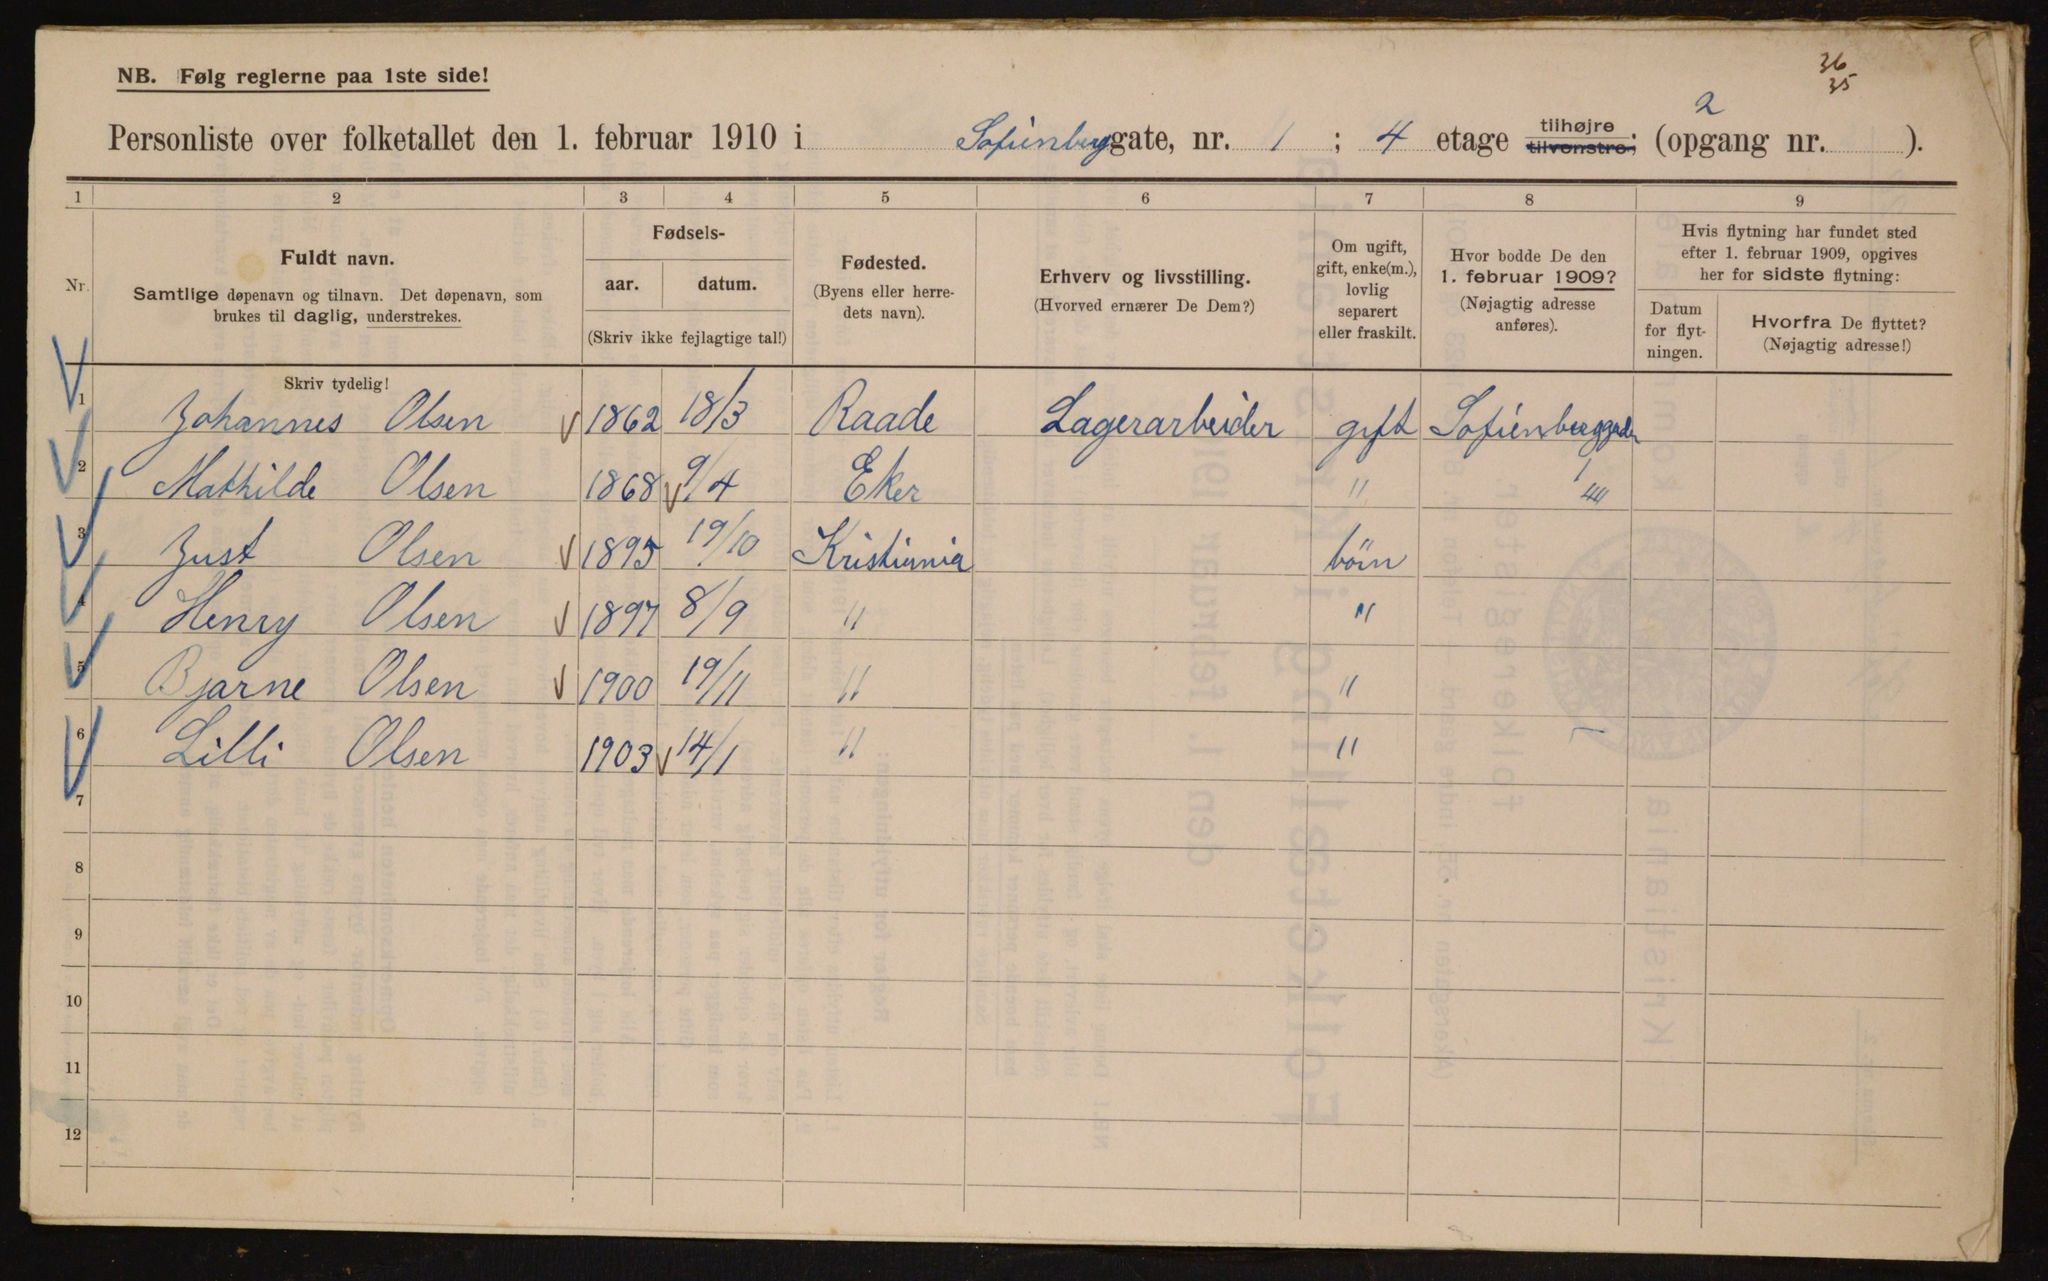 36
35
NB. Følg reglerne paa 1ste side!
2
Personliste over folketallet den 1. februar 1910 i Sofienberggate, nr. 1 ; 4 etage tilhøjre tilvenstre; (opgang nr. ).
1 2 3 4 5 6 7 8 9
Nr.
Fuldt navn.
Samtlige døpenavn og tilnavn. Det døpenavn, som
brukes til daglig, understrekes.
Skriv tydelig!
Fødsels-
aar. datum.
(Skriv ikke fejlagtige tal!)
Fødested.
(Byens eller herre-
dets navn).
Erhverv og livsstilling.
(Hvorved ernærer De Dem?)
Om ugift,
gift, enke(m.),
lovlig
separert
eller fraskilt.
Hvor bodde De den
1. februar 1909?
(Nøjagtig adresse
anføres).
Hvis flytning har fundet sted
efter 1. februar 1909, opgives
her for sidste flytning:
Datum
for flyt-
ningen.
Hvorfra De flyttet?
(Nøjagtig adresse!)
1 Johannes Olsen 1862 18/3 Raade Lagerarbeider gift Sofienberggaden
2 Mathilde Olsen 1868 9/4 Eker " 1/4
3 Just Olsen 1895 19/10 Kristiania börn
4 Henry Olsen 1897 8/9 " "
5 Bjarne Olsen 1900 19/11 " "
6 Lilli Olsen 1903 14/1 " "
7
8
9
10
11
12